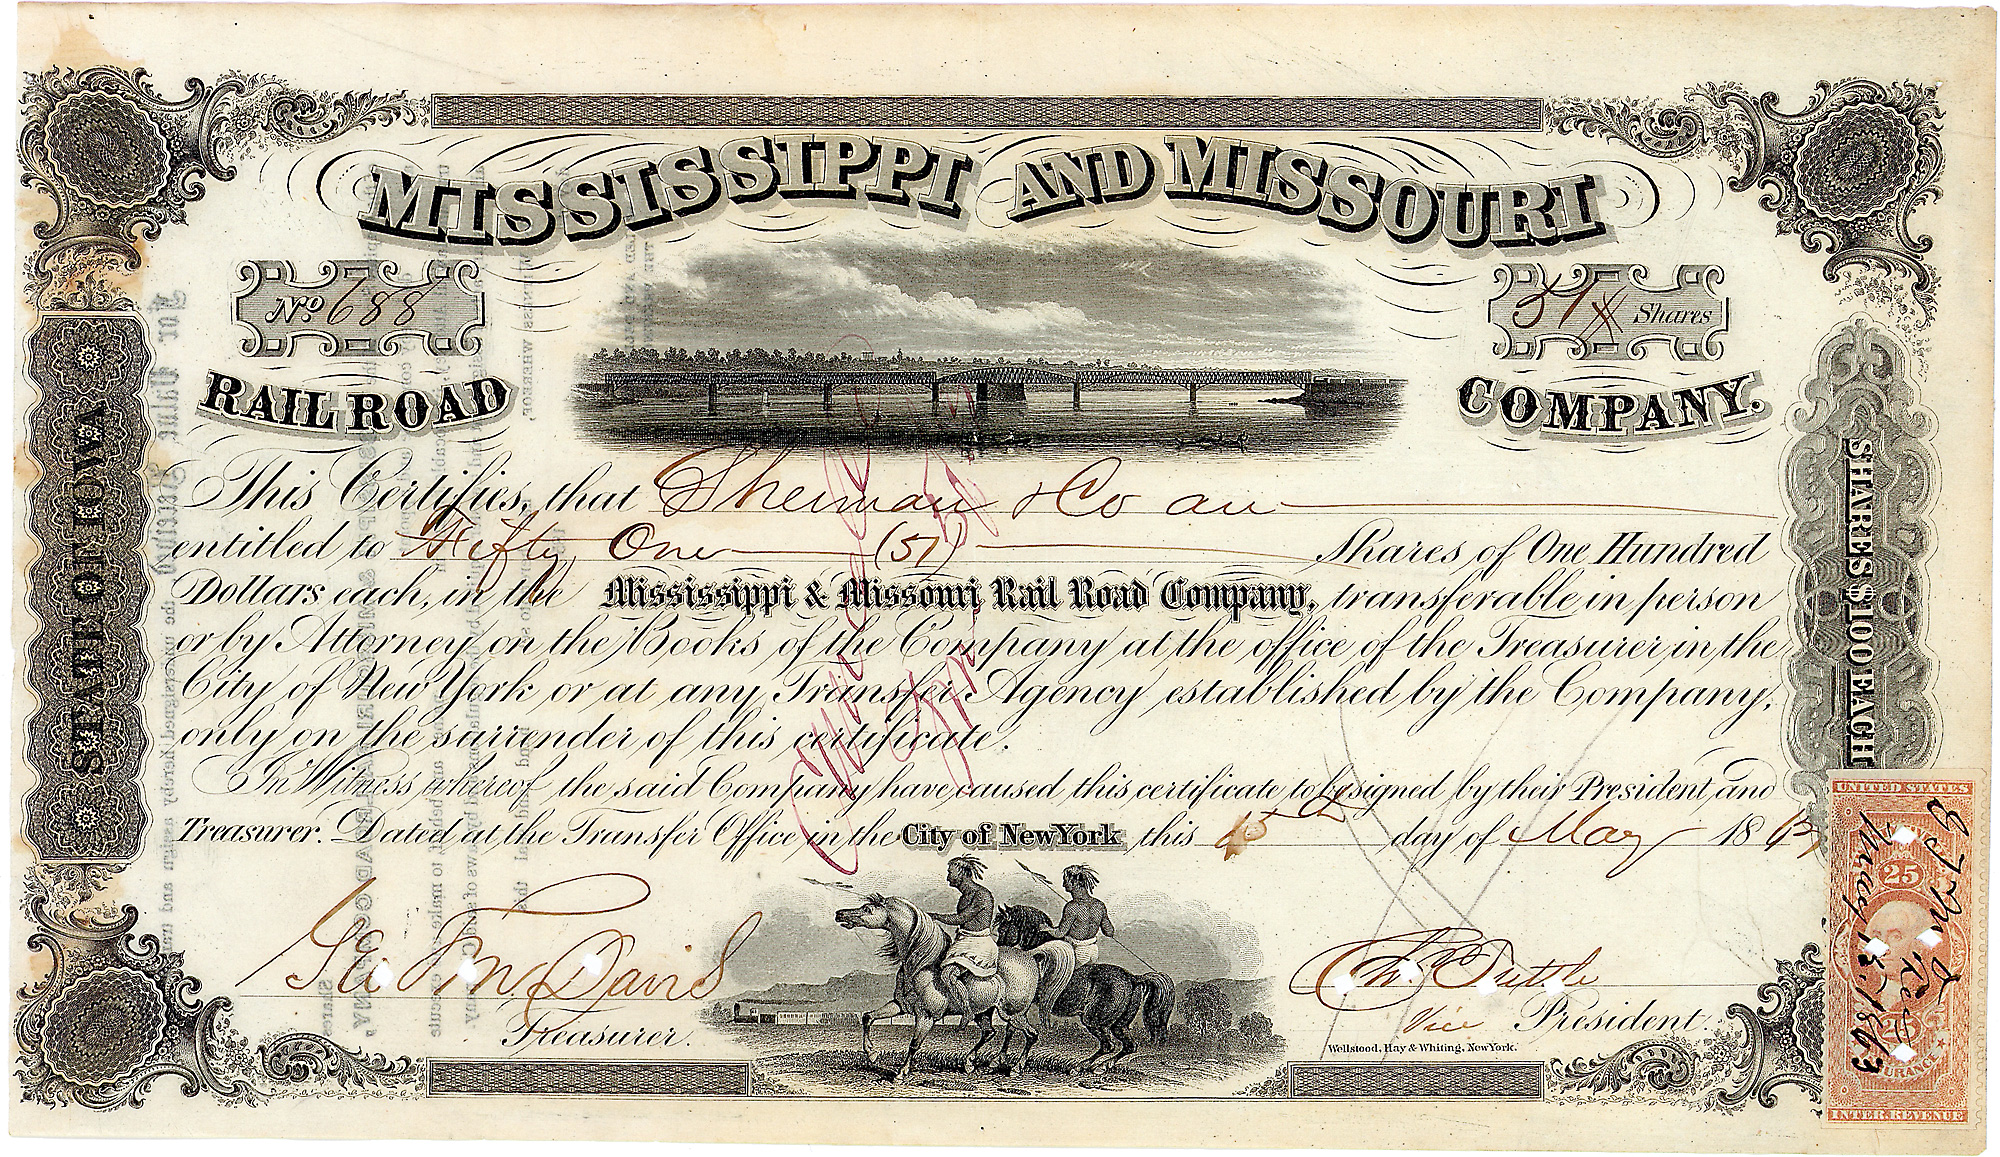 MISSISSIPPI AND MISSOURI
No 688
51 Shares
RAIL ROAD
COMPANY.
STATE OF IOWA
SHARES $100 EACH
This Certifies, that Sherman & Co are
entitled to Fifty One (51) Shares of One Hundred
Dollars each, in the Mississippi & Missouri Rail Road Company, transferable in person
or by Attorney on the Books of the Company at the office of the Treasurer in the
City of New York or at any Transfer Agency established by the Company,
only on the surrender of this certificate.
In Witness whereof the said Company have caused this certificate to be signed by their President and
Treasurer. Dated at the Transfer Office in the City of New York this 15th day of May 1863
Cancelled
Treasurer.
Vice President.
Wellstood, Hay & Whiting, New York.
UNITED STATES
25
25
INTER. REVENUE
May 15. 1863